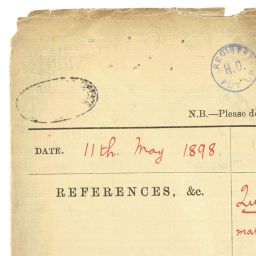 REGISTRY
H.O.
N.B.—Please d
DATE. 11th. May 1898.
REFERENCES, &c.